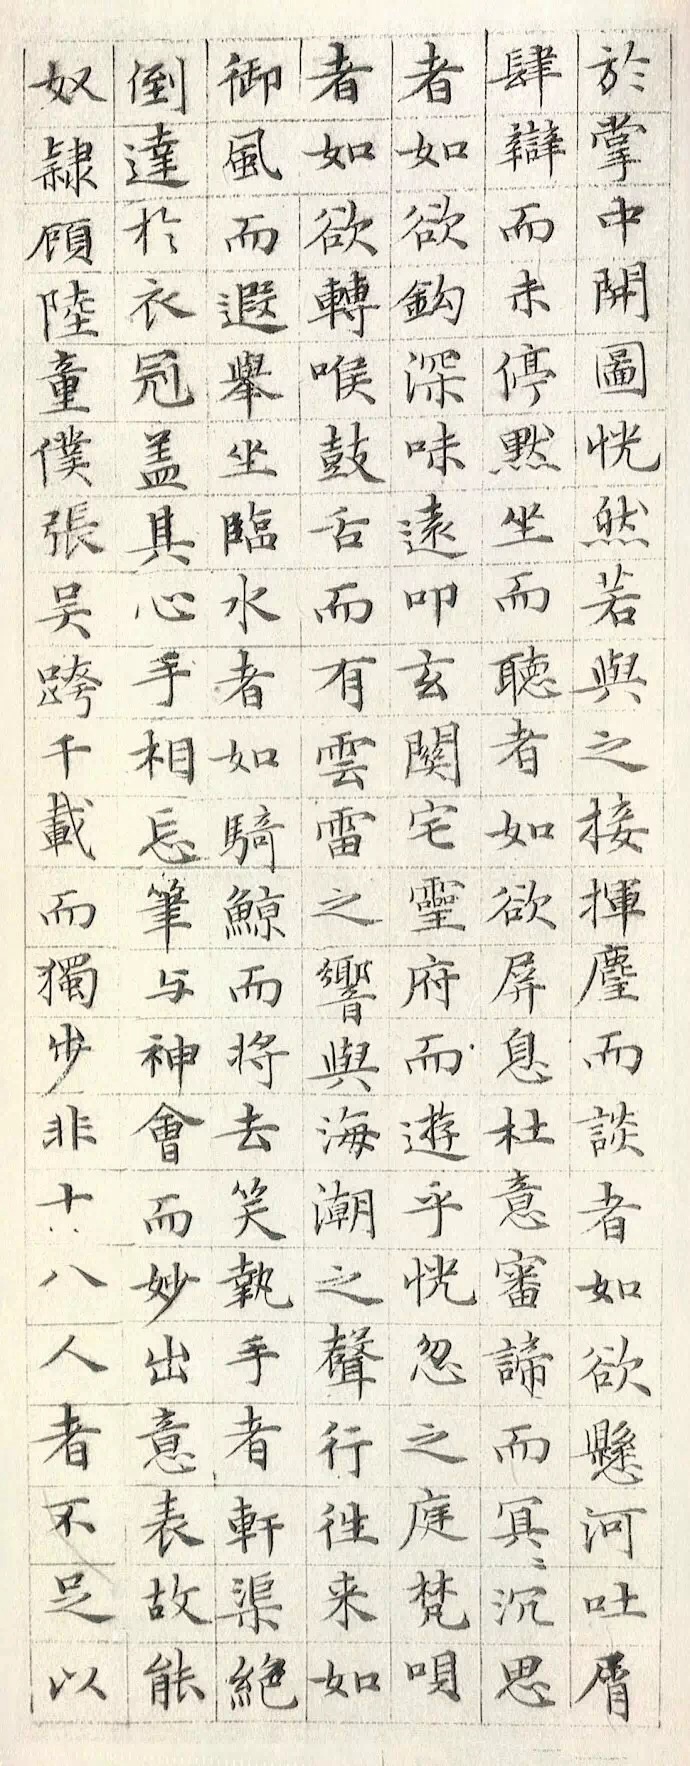 於掌中開圖恍然若與之接揮麈而談者如欲懸河吐屑
肆辯而未停默坐而聽者如欲屏息杜意審諦而冥〻沉思
者如欲鈎深味遠叩玄関宅靈府而遊乎恍忽之庭梵唄
者如欲轉喉鼓舌而有雲雷之響與海潮之聲行往来如
御風而遐舉坐臨水者如騎鯨而将去笑執手者軒渠絶
倒達於衣冠盖其心手相忘筆与神會而妙出意表故能
奴隷顧陸童僕張吴跨千載而獨步非十八人者不足以